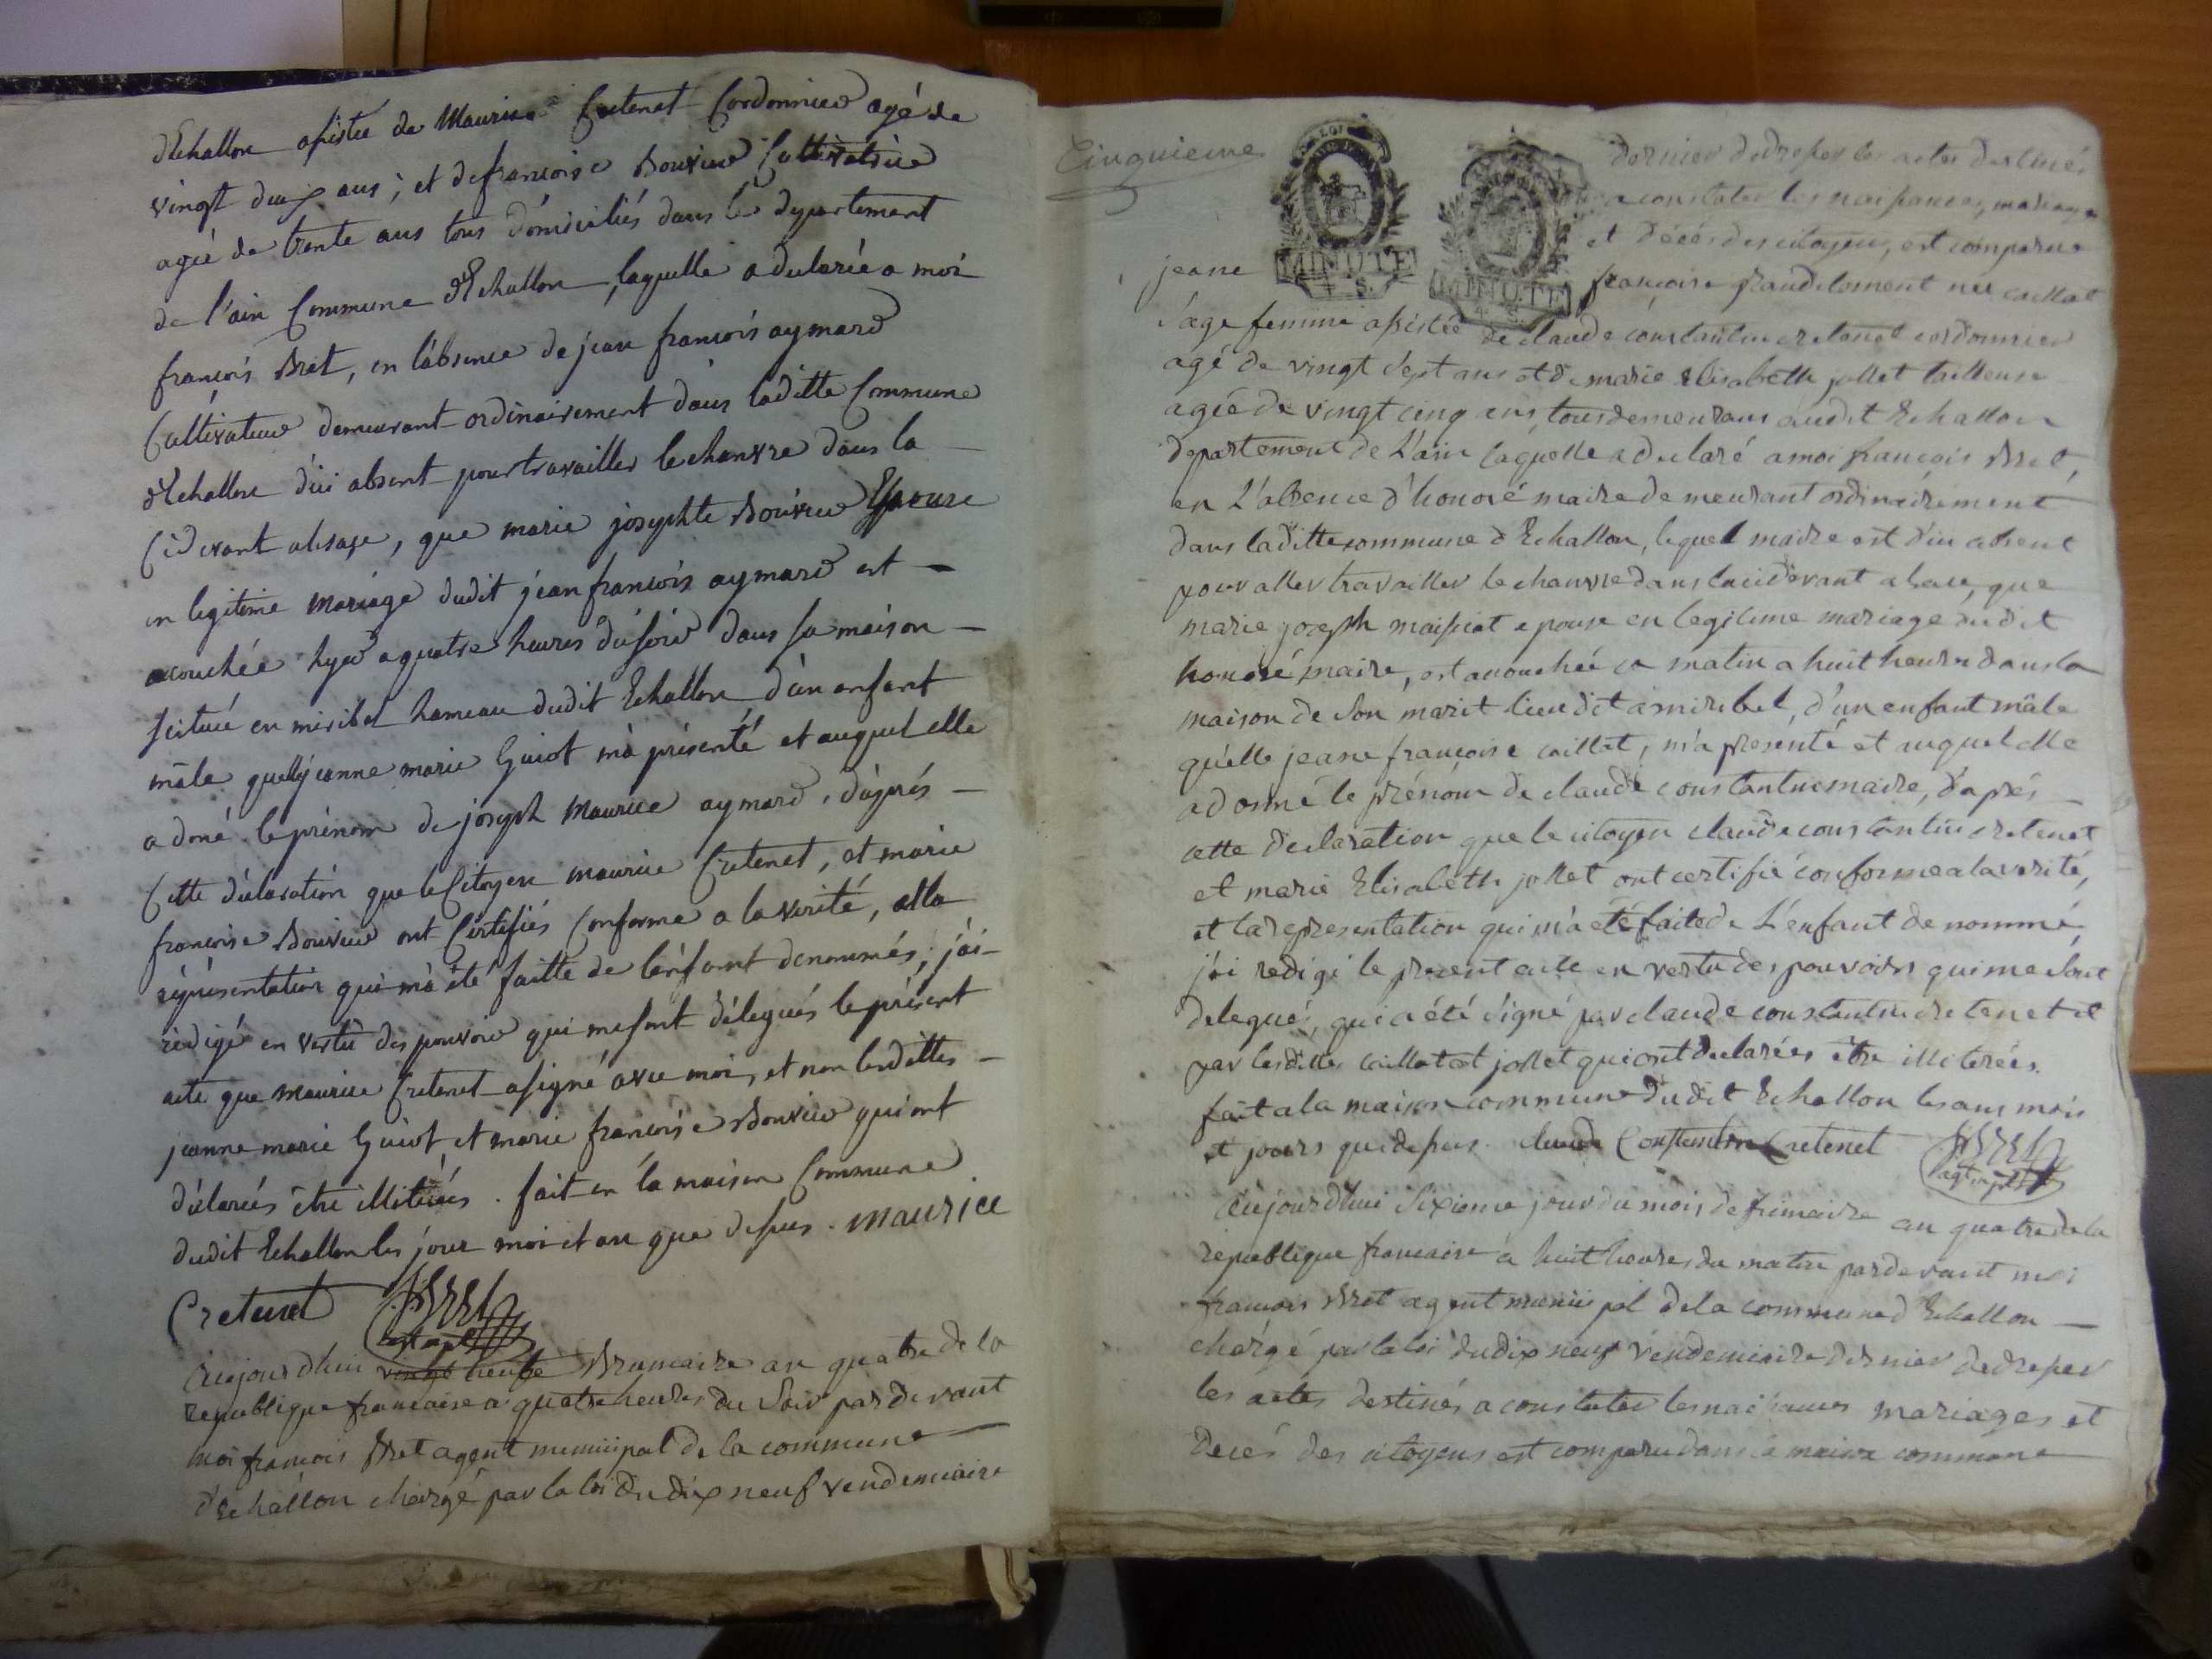 d'Echallon assistée de Maurice Cretenet Cordonnier agé de
vingt deux ans ; et de francoise Bouvier Cultivatrice
agée de trente ans tous domiciliés dans le departement
de l'ain Commune d'Echallon, laquelle a declarée a moi
francois Bret, en l'absence de jean francois aymard
Cultivateur demeurant ordinairement dans laditte Commune
d'Echallon d'ici absent pour travailler le chanvre dans la
Cidevant alsace, que marie josephte Bouvier Epouse
en legitime mariage dudit jean francois aymard est
acouchée hyer a quatre heures du soir dans sa maison
scituée en miribel hameau dudit Echallon d'un enfant
mâle quelle jeanne marie Guiot m'à présenté et auquel elle
a doné le prénom de joseph Maurice aymard, d'après
Cette déclaration que le Citoyen maurice Cretenet, et marie
francoise Bouvier ont Certifiés Conforme a la verité, et la
réprésentation qui m'à été faitte de l'enfant denommés, j'ai
rédigé en vertu des pouvoir qui me sont délegués le présent
acte que maurice Cretenet a signé avec moi, et non lesdittes
jeanne marie Guiot, et marie francoise Bouvier qui ont
déclarées être illiterées. fait en la maison Commune
dudit Echallon les jour mois et an que dessus. maurice
Cretenet Bret
agt mpl
Aujourdhui vingt neufe Brumaire an quatre de la
republique francaise a quatre heures du Soir pardevant
moi francois Bret agent municipal de la commune
d'Echallon chargé par la loi du dix neuf vendemiaire
Cinquieme
LA LOI
MINUTE
4 S.
MINUTE
dernier de dresser les actes destinés
a constater les naissances, mariages
et décés des citoyens, est comparue
jeane francoise grandclement née caillat
sage femme assistée de claude constantin cretenet cordonnier
agé de vingt sept ans et de marie Elisabeth jollet tailleuse
agée de vingt cinq ans, tous demeurans audit Echallon
departement de L'ain laquelle a declaré a moi francois Bret,
en L'absence d'honoré maire demeurant ordinairement
dans laditte commune d'Echallon, lequel maire est d'ici absent
pour aller travailler le chanvre dans la cidevant alsace, que
marie joseph maissiat epouse en legitime mariage dudit
honoré maire, est acouchée ce matin a huit heures dans la
maison de son marit lieu dit a miribel, d'un enfant mâle
qu'elle jeane francoise caillat, m'a presenté et auquel elle
a donné le prénom de claude constantin maire, d'aprés
cette declaration que le citoyen claude constantin cretenet
et marie Elisabeth jollet ont certifié conforme a la verité,
et la representation qui m'a été faite de L'enfant denommé,
j'ai redigé le present acte en vertu des pouvoirs qui me sont
delegués, qui a été signé par claude constantin cretenet et
par lesdittes caillat et jollet qui ont declarées être illiterées.
fait a la maison commune dudit Echallon les ans mois
et jours que dessus. claude Constantin Cretenet Bret
agt mpl
Aujourdhui Sixieme jour du mois de frimaire an quatre de la
republique francaise a huit heures du matin pardevant moi
francois Bret agent municipal de la commune d'Echallon
chargé par la loi du dix neuf vendemiaire dernier de dresser
les actes destinés a constater les naissances mariages et
decés des citoyens est comparu dans la maison commune